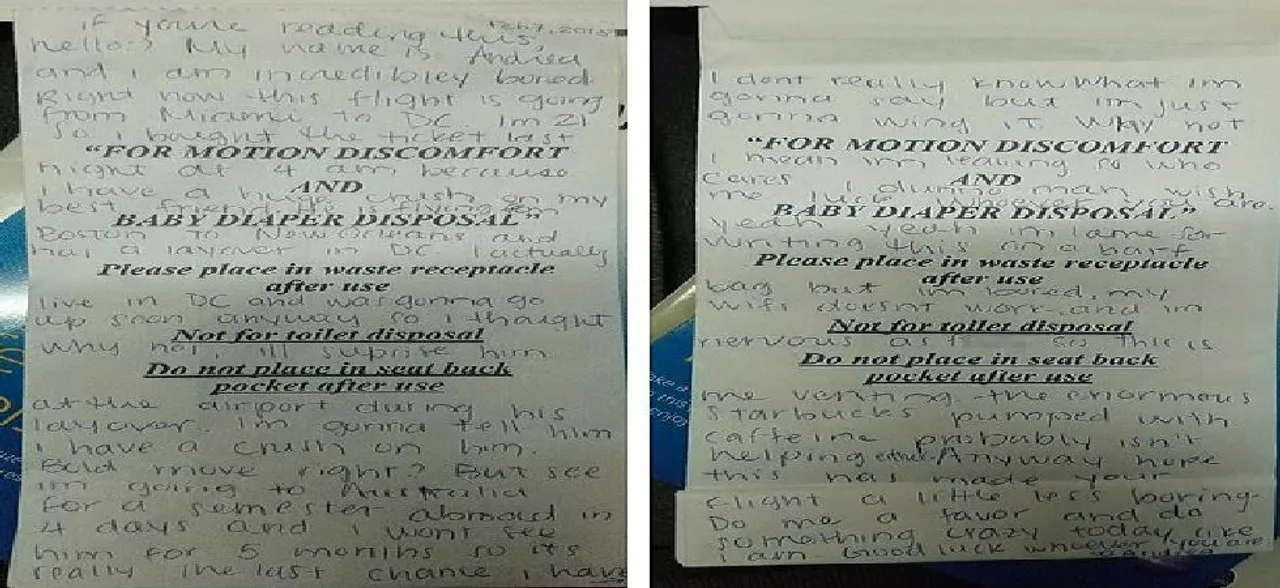 if you're reading this, Feb 7, 2015
hello:) My name is Andrea
and I am incredibley bored
Right now this flight is going
from Miami to DC. Im 21
So I bought the ticket last
"FOR MOTION DISCOMFORT
night at 4 am because
AND
I have a huge crush on my
best friend. He is flying from
BABY DIAPER DISPOSAL"
Boston to New Orleans and
has a layover in DC. I actually
Please place in waste receptacle
after use
live in DC and was gonna go
up soon anyway so I thought
Not for toilet disposal
why not, ill suprise him
Do not place in seat back
pocket after use
at the airport during his
layover. Im gonna tell him
I have a crush on him.
Bold move right? But see
im going to Australia
for a semester abroad in
4 days and I wont see
him for 5 months so its
really the last chance I have
I dont really know what im
gonna say but im just
gonna wing it. Why not
"FOR MOTION DISCOMFORT
I mean im leaving so who
AND
cares I dunno man wish
me luck whoever you are.
BABY DIAPER DISPOSAL"
yeah yeah im lame for
writing this on a barf
Please place in waste receptacle
after use
bag but im bored, my
wifi doesnt work and im
Not for toilet disposal
nervous as f so this is
Do not place in seat back
pocket after use
me venting. the enormous
Starbucks pumped with
caffeine probably isn't
helping either. Anyway hope
this has made your
flight a little less boring.
Do me a favor and do
something crazy today like
I am. Good luck whoever you are